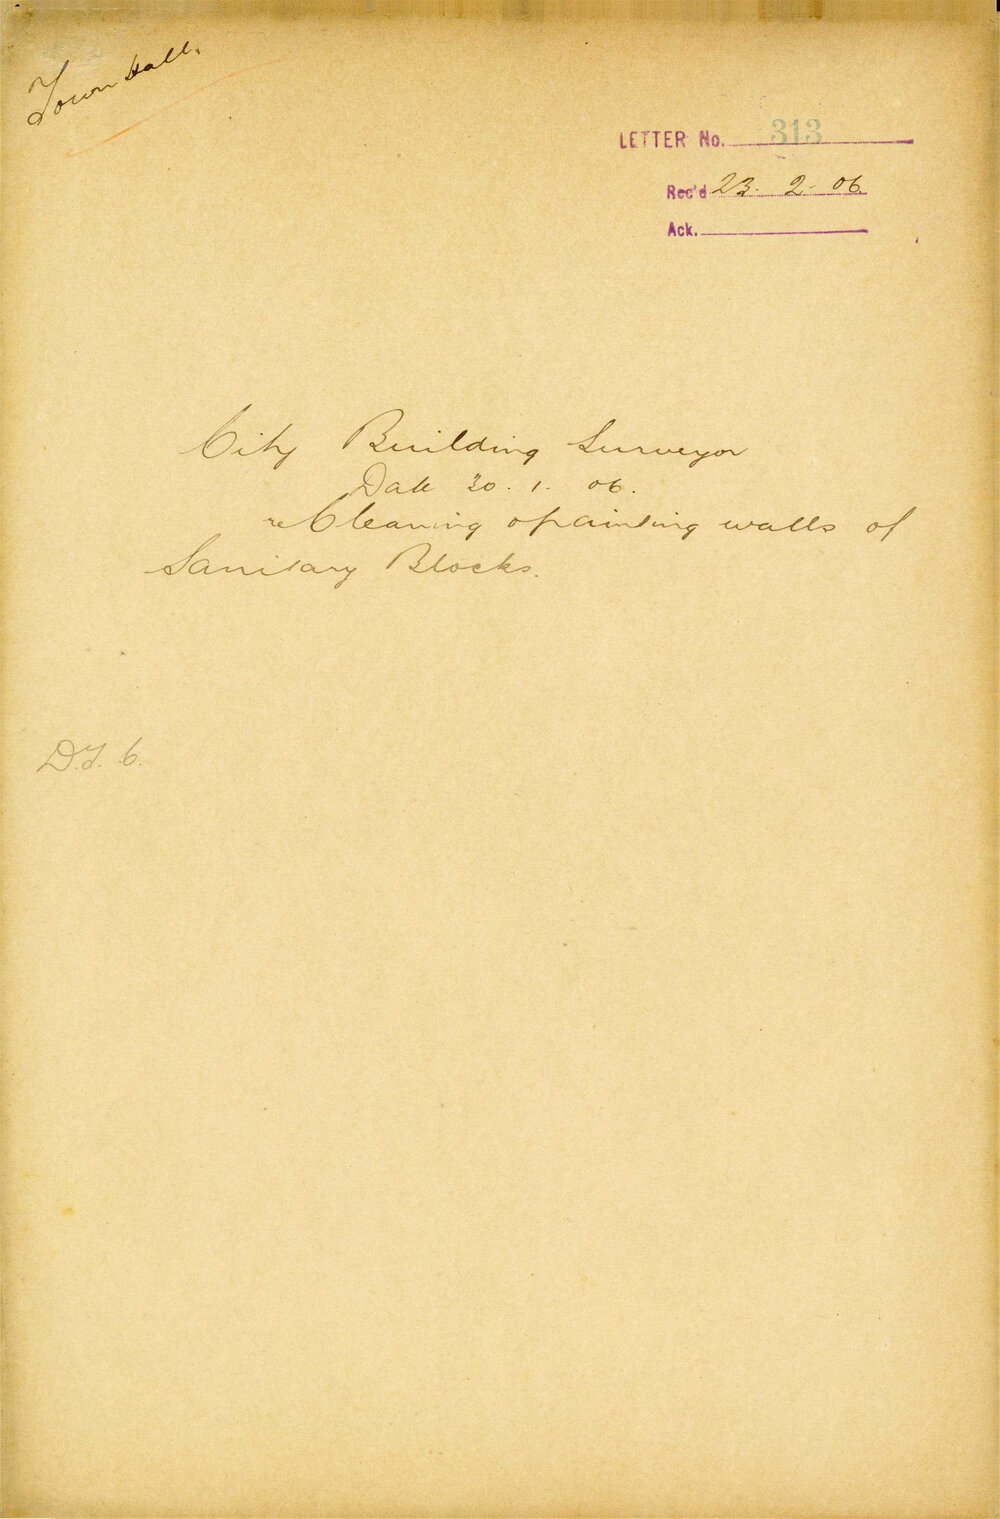 Town Hall.
LETTER No. 313
Rec'd 23. 2. 06
Ack.
City Building Surveyor
Date 30. 1. 06.
re Cleaning & painting walls of
Sanitary Blocks.